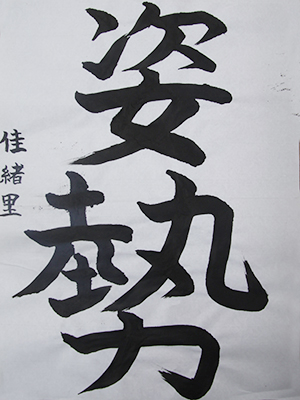 姿勢
佳緒里